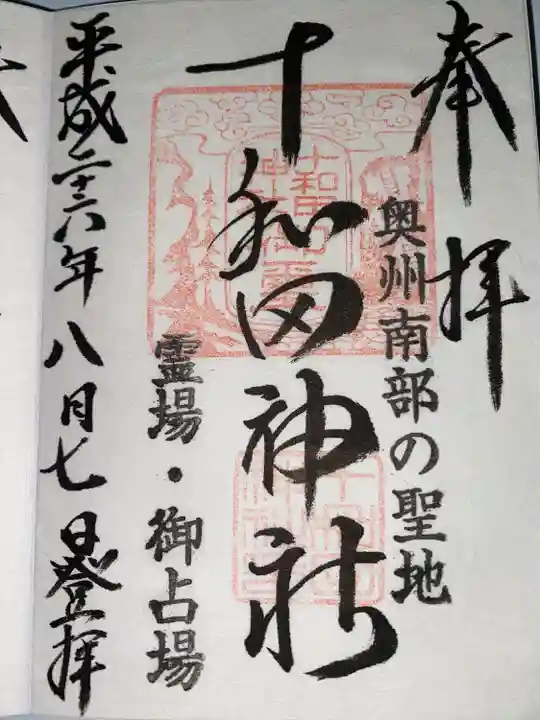 奉拝
奥州南部の聖地
十和田神社
霊場・御占場
平成二十六年八月七日登拝